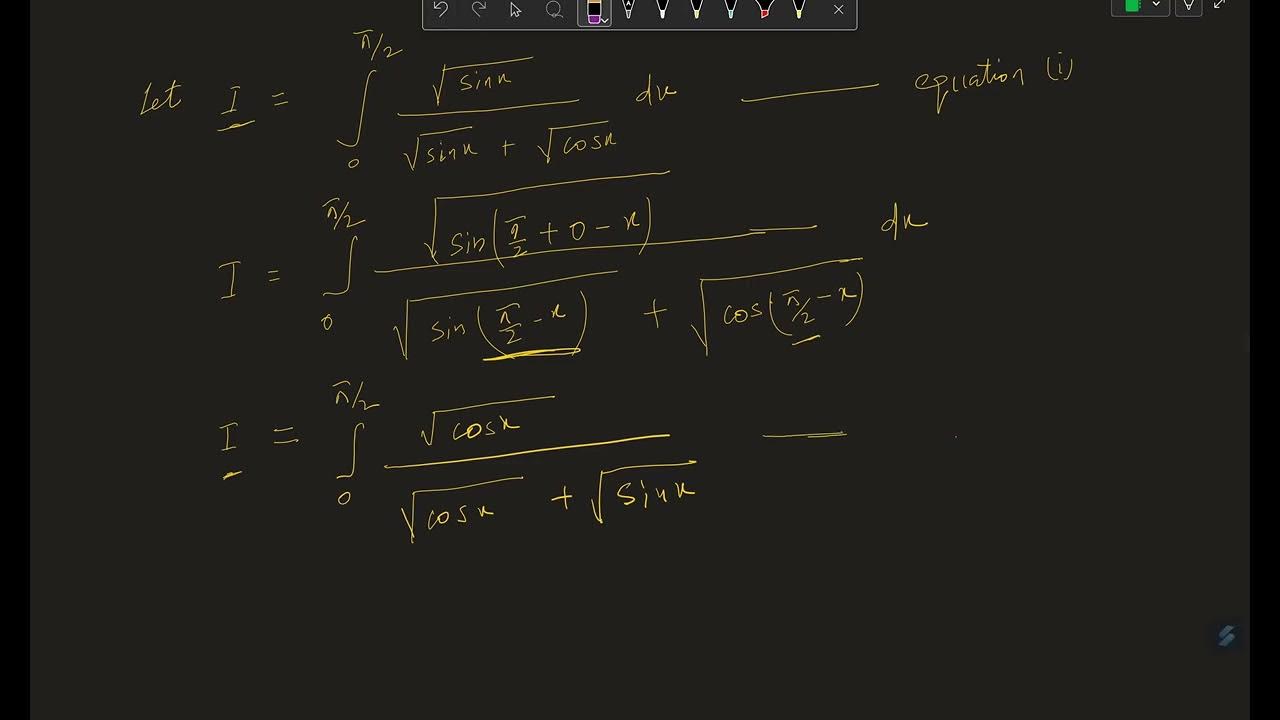 Let I = ∫₀^{π/2} √sinx / (√sinx + √cosx) dx —— equation (i)
I = ∫₀^{π/2} √sin(π/2 + 0 − x) / (√sin(π/2 − x) + √cos(π/2 − x)) dx
I = ∫₀^{π/2} √cosx / (√cosx + √sinx) ——